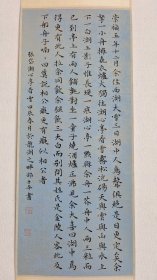 崇禎五年十二月余住西湖大雪三日湖中人鳥聲俱絕是日更定矣余
拏一小舟擁毳衣爐火獨往湖心亭看雪霧凇沆碭天與雲與山與水上
下一白湖上影子惟長堤一痕湖心亭一點與余舟一芥舟中人兩三粒而
已到亭上有兩人鋪氈對坐一童子燒酒爐正沸見余大喜曰湖中焉
得更有此人拉余同飲余強飲三大白而別問其姓氏是金陵人客此及
下船舟子喃喃曰莫說相公癡更有癡似相公者
張岱湖心亭看雪 春月於龍湖之 書